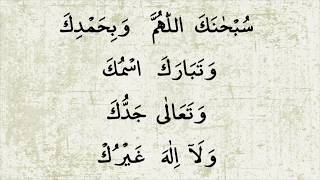 سُبْحٰنَكَ اللّٰهُمَّ وَبِحَمْدِكَ
وَتَبَارَكَ اسْمُكَ
وَتَعَالٰى جَدُّكَ
وَلَآ اِلٰهَ غَيْرُكْ